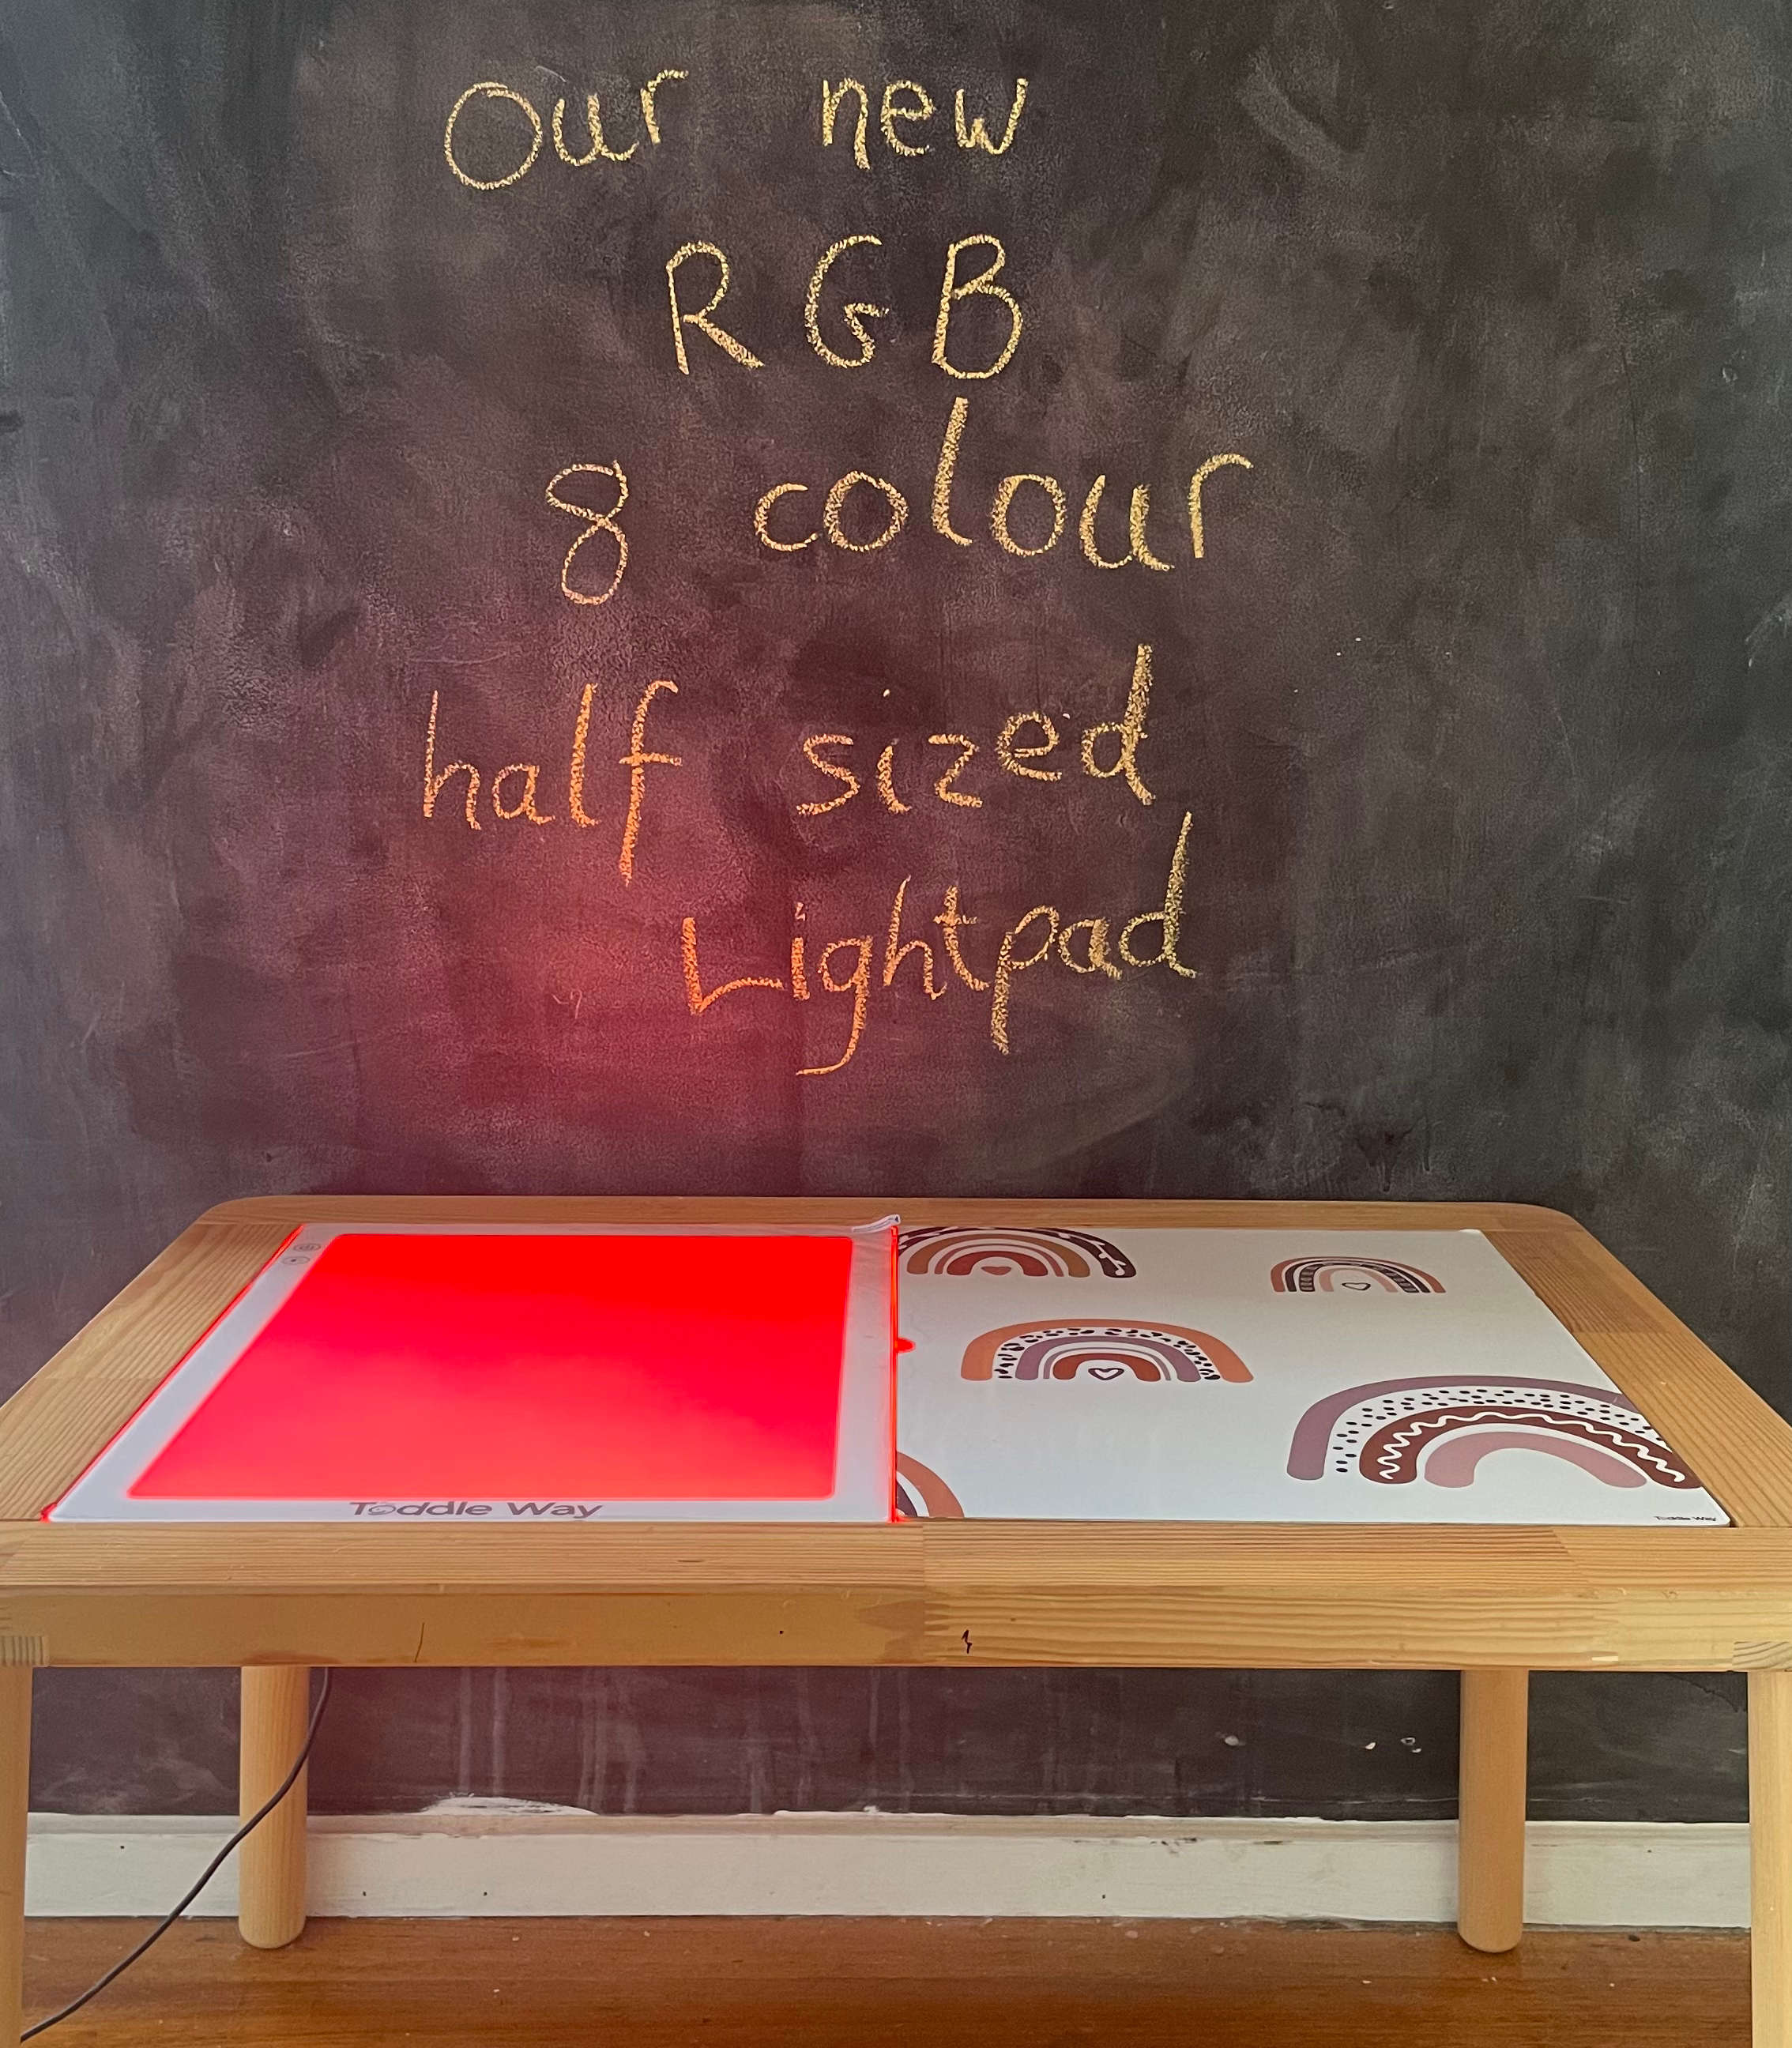 Our new
RGB
8 colour
half sized
Lightpad
Toddle Way
Toddle Way